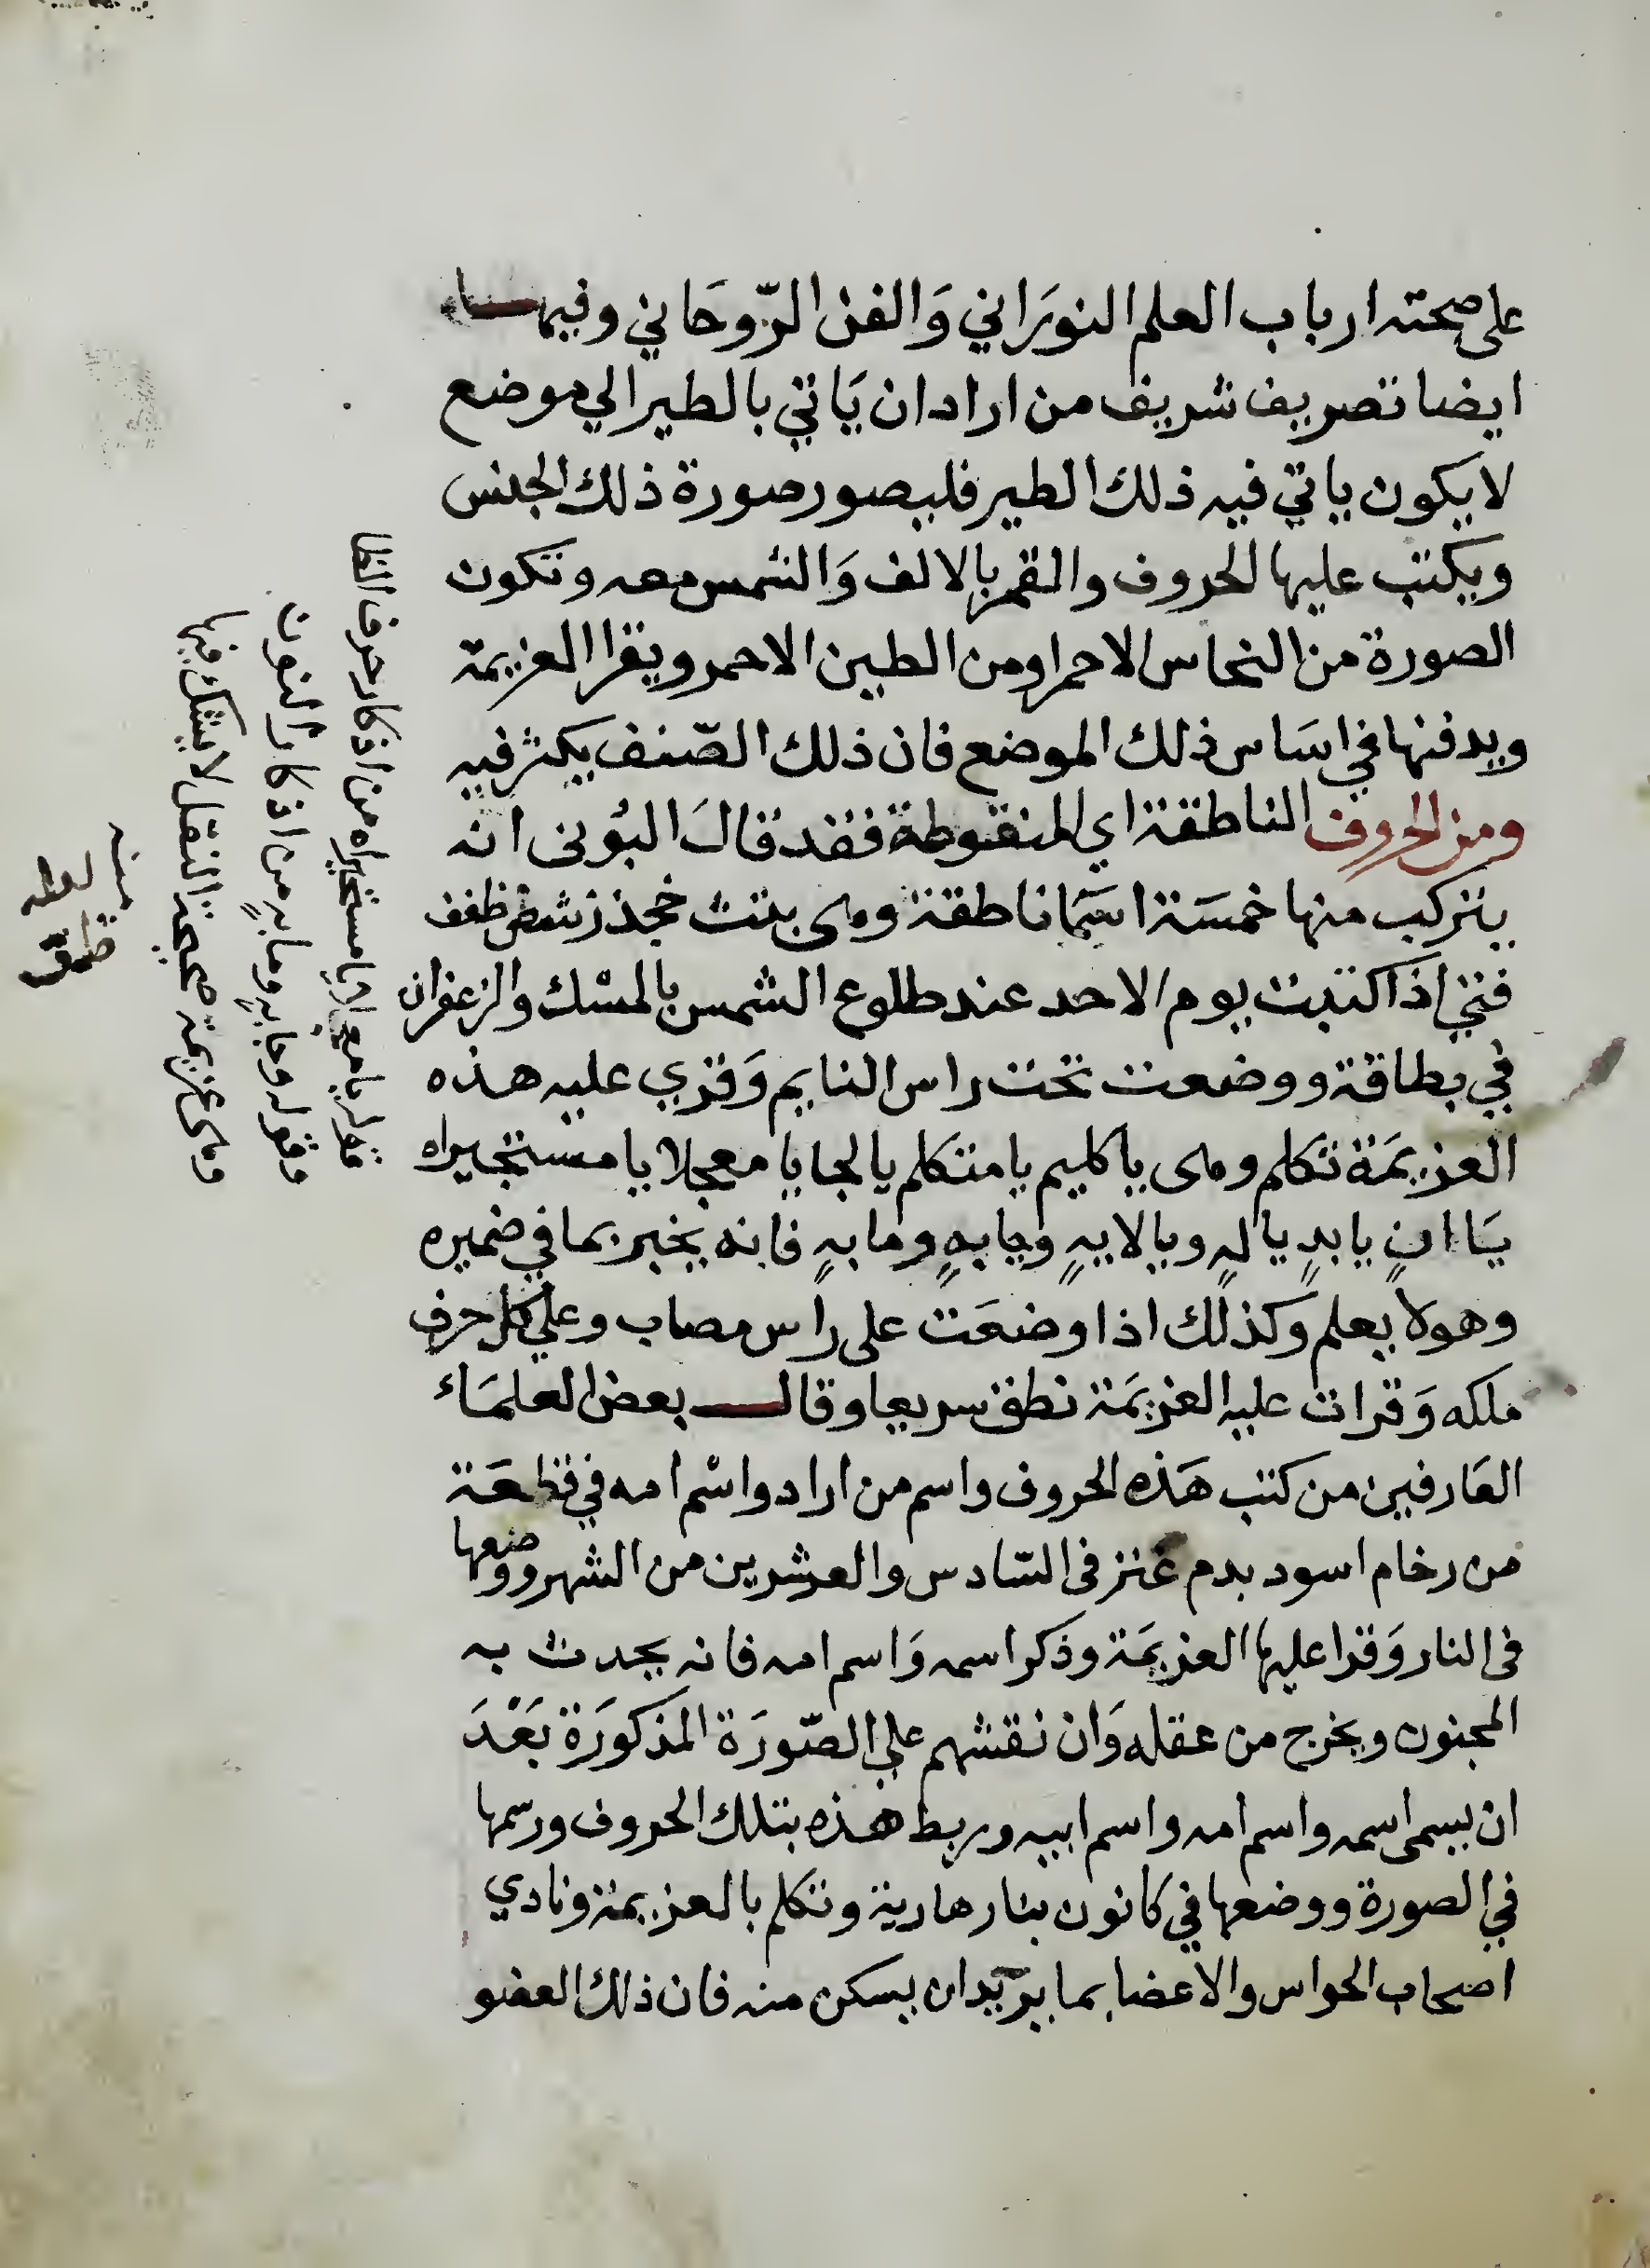 على صحته ارباب العلم النوراني وَالفن الرّوحَاني وفيها
ايضا تصريف شريف من اراد ان يَاتي بالطير الي موضع
لا يكون ياتي فيه ذلك الطير فليصور صورة ذلك الجنس
ويكتب عليها الحروف والقمر بالالف وَالشمس معه وتكون
الصورة من النحاس الاحمر او من الطين الاحمر ويقرا العزيمة
ويدفنها في اسَاس ذلك الموضع فان ذلك الصّنف يكثر فيه
ومن الحروف الناطقة اي المنقوطة فقد قالَ البُونى انه
يتركب منها خمسَة اسَما ناطقة وهى بتث خجذ زشض ظغف
فتي اذا كتبت يوم الاحد عند طلوع الشمس بالمسْك والزعفران
في بطاقة ووضعت تحت راس النايم وَقري عليه هذه
العزيمَة تكلم وهى يا كليم يا متكلم يا لجايا يا معجلا يا مستجيراه
يَا انٍ يا بدٍ يا لهٍ ويا لايهٍ وجابهٍ ومابهٍ فانه يخبر بما في ضميره
وهو لا يعلم وكذلك اذا وضعَت على راس مصاب وعلي كل حرف
ملكه وَقرات عليه العزيمَة نطق سريعا وقال بعض العلمَاء
العَارفين من كتب هَذه الحروف واسم من اراد واسْم امه في قطعَة
من رخام اسود بدم عنز فى السّادس والعشرين من الشهر ووضعها
فى النار وَقرا عليها العزيمَة وذكر اسمه وَاسم امه فانه يحدث به
المجنون ويخرج من عقله وَان نقشهم علي الصّورَة المَذكورَة بَعْدَ
ان يسمى اسمه واسم امه واسم ابيه وربط هذه بتلك الحروف ورسمها
في الصورة ووضعها في كانون بنار هادية وتكلم بالعزيمة ونادي
اصحاب الحواس والاعضا بما يريد ان يسكن منه فان ذلك العضو
قوله يا معجلا يا مستجيراه من اذكار حرف الظا
وقوله وجابهٍ ومابهٍ من اذكار النون
وهى عزيمة صحيحة النقل لا يشك فيها